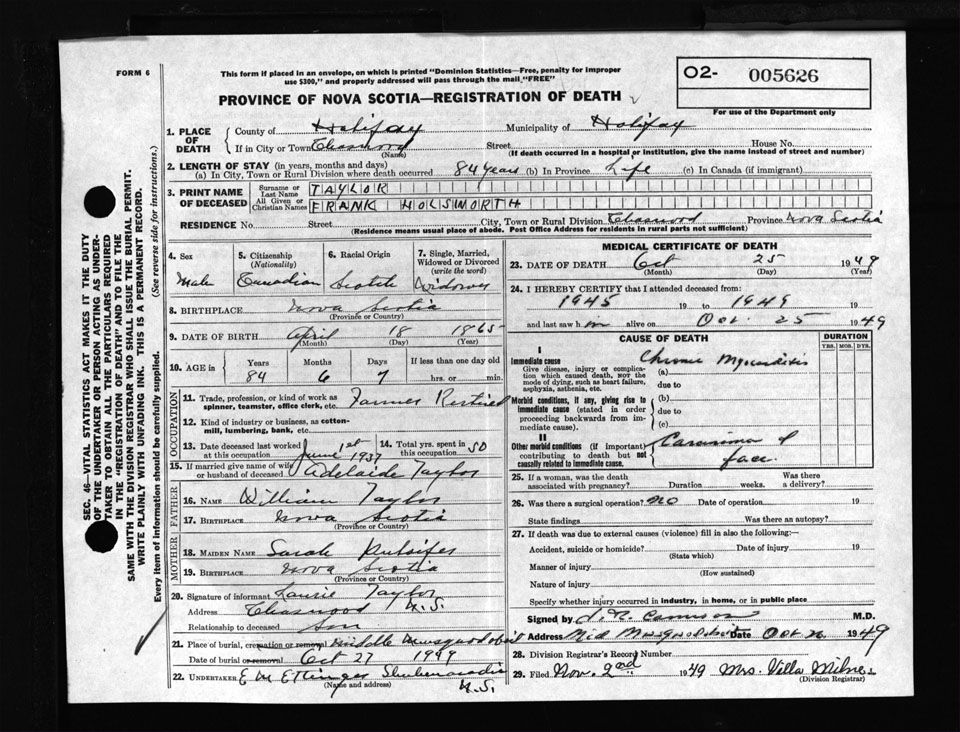 FORM 6
This form if placed in an envelope, on which is printed "Dominion Statistics—Free, penalty for improper
use $300," and properly addressed will pass through the mail "FREE"
O2- 005626
For use of the Department only
PROVINCE OF NOVA SCOTIA—REGISTRATION OF DEATH
1. PLACE OF DEATH
County of Halifax Municipality of Halifax
If in City or Town Chaswood Street House No.
(Name) (If death occurred in a hospital or institution, give the name instead of street and number)
2. LENGTH OF STAY (in years, months and days)
(a) In City, Town or Rural Division where death occurred 84 years (b) In Province Life (c) In Canada (if immigrant)
3. PRINT NAME OF DECEASED
Surname or Last Name TAYLOR
All Given or Christian Names FRANK HOLSWORTH
RESIDENCE No. Street City, Town or Rural Division Chaswood Province Nova Scotia
(Residence means usual place of abode. Post Office Address for residents in rural parts not sufficient)
4. Sex
Male
5. Citizenship (Nationality)
Canadian
6. Racial Origin
Scotch
7. Single, Married, Widowed or Divorced (write the word)
Widower
8. BIRTHPLACE Nova Scotia
(Province or Country)
9. DATE OF BIRTH April 18 1865
(Month) (Day) (Year)
10. AGE in Years Months Days If less than one day old
84 6 7 hrs. or min.
OCCUPATION
11. Trade, profession, or kind of work as spinner, teamster, office clerk, etc. Farmer Retired
12. Kind of industry or business, as cotton-mill, lumbering, bank, etc.
13. Date deceased last worked at this occupation June 1st 1937
14. Total yrs. spent in this occupation 50
15. If married give name of wife or husband of deceased Adelaide Taylor
FATHER
16. Name William Taylor
17. Birthplace Nova Scotia
(Province or Country)
MOTHER
18. Maiden Name Sarah Pulsifer
19. Birthplace Nova Scotia
(Province or Country)
20. Signature of informant Laurie Taylor
Address Chaswood N.S.
Relationship to deceased Son
21. Place of burial, cremation or removal Middle Musquodoboit
Date of burial or removal Oct 27 1949
22. Undertaker E M Ettinger Shubenacadie
(Name and address) N.S.
MEDICAL CERTIFICATE OF DEATH
23. DATE OF DEATH Oct 25 1949
(Month) (Day) (Year)
24. I HEREBY CERTIFY that I attended deceased from:
1945 19 to 1949
and last saw him alive on Oct. 25 1949
CAUSE OF DEATH
DURATION
YRS. MOS. DYS.
I
Immediate cause
Give disease, injury or complication which caused death, NOT the mode of dying, such as heart failure, asphyxia, asthenia, etc.
(a) Chronic Myocarditis
due to
Morbid conditions, if any, giving rise to immediate cause (stated in order proceeding backwards from immediate cause).
(b)
due to
(c)
II
Other morbid conditions (if important) contributing to death but not causally related to immediate cause.
Carcinoma of
face
25. If a woman, was the death associated with pregnancy? Duration weeks. Was there a delivery?
26. Was there a surgical operation? No Date of operation 19
State findings Was there an autopsy?
27. If death was due to external causes (violence) fill in also the following:—
Accident, suicide or homicide? Date of injury 19
(State which)
Manner of injury
(How sustained)
Nature of injury
Specify whether injury occurred in industry, in home, or in public place
Signed by M.D.
Address Mid Musquodoboit Date Oct 26 1949
28. Division Registrar's Record Number
29. Filed Nov. 2nd 1949 Mrs. Villa Milne
(Division Registrar)
SEC. 46—VITAL STATISTICS ACT MAKES IT THE DUTY
OF THE UNDERTAKER OR PERSON ACTING AS UNDER-
TAKER TO OBTAIN ALL THE PARTICULARS REQUIRED
IN THE "REGISTRATION OF DEATH" AND TO FILE THE
SAME WITH THE DIVISION REGISTRAR WHO SHALL ISSUE THE BURIAL PERMIT.
WRITE PLAINLY WITH UNFADING INK. THIS IS A PERMANENT RECORD.
Every item of information should be carefully supplied. (See reverse side for instructions.)